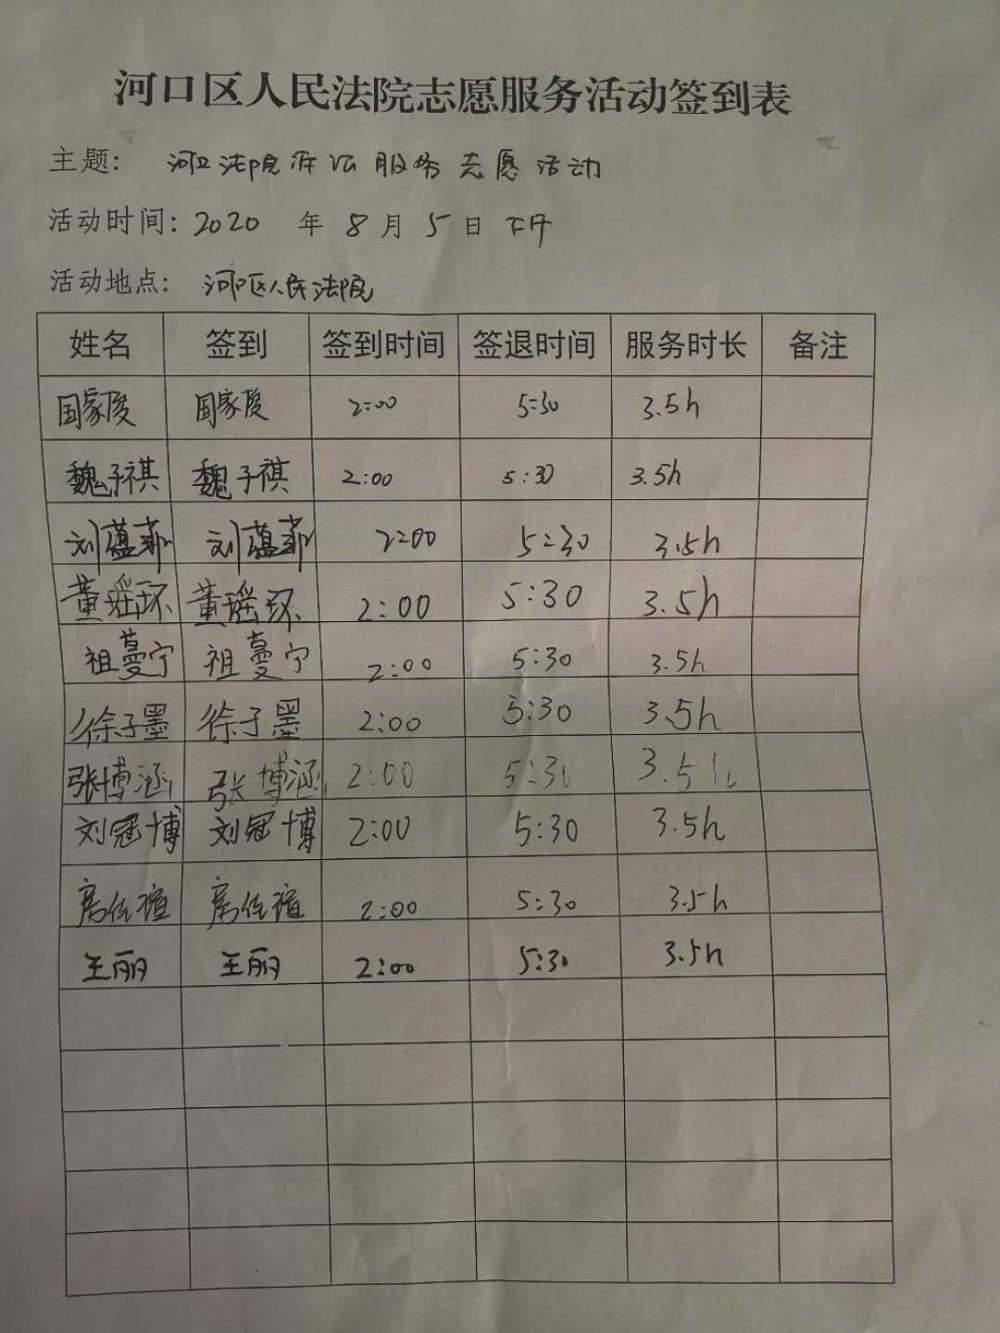 河口区人民法院志愿服务活动签到表
主题: 河口法院诉讼服务志愿活动
活动时间: 2020 年 8 月 5 日 下午
活动地点: 河口区人民法院
姓名 签到 签到时间 签退时间 服务时长 备注
国家俊 国家俊 2:00 5:30 3.5h
魏子祺 魏子祺 2:00 5:30 3.5h
刘蕴菲 刘蕴菲 2:00 5:30 3.5h
董瑶环 董瑶环 2:00 5:30 3.5h
祖蔓宁 祖蔓宁 2:00 5:30 3.5h
徐子墨 徐子墨 2:00 5:30 3.5h
张博涵 张博涵 2:00 5:30 3.5h
刘冠博 刘冠博 2:00 5:30 3.5h
2:00 5:30 3.5h
王丽 王丽 2:00 5:30 3.5h